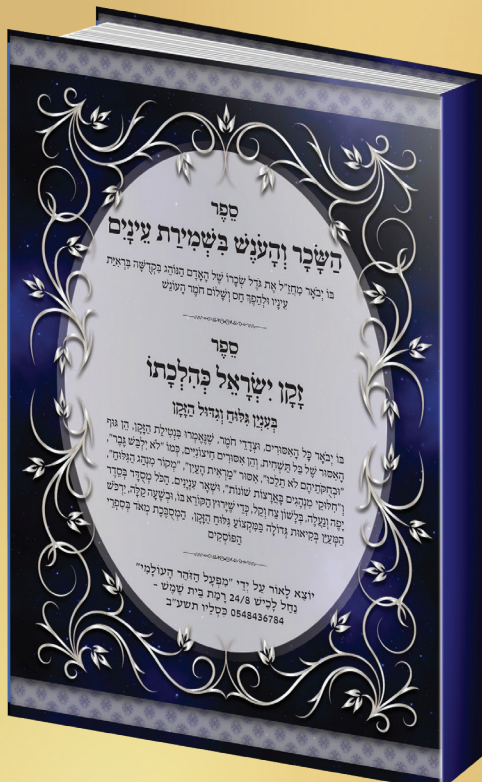 סֵפֶר
הַשָּׂכָר וְהָעֹנֶשׁ בִּשְׁמִירַת עֵינָיִם
בּוֹ יְבֹאָר מֵחֲזַ"ל אֶת גֹּדֶל שְׂכָרוֹ שֶׁל הָאָדָם הַנּוֹהֵג בִּקְדֻשָּׁה בִּרְאִיַּת
עֵינָיו וּלְהֵפֶךְ חַס וְשָׁלוֹם חֹמֶר הָעוֹנֶשׁ
סֵפֶר
זְקַן יִשְׂרָאֵל כְּהִלְכָתוֹ
בְּעִנְיַן גִּלּוּחַ וְגִדּוּל הַזָּקָן
בּוֹ יְבֹאָר כָּל הָאִסּוּרִים, וּצְדָדֵי חֹמֶר, שֶׁנֶּאֶמְרוּ בִּנְטִילַת הַזָּקָן, הֵן גּוּף
הָאִסּוּר שֶׁל בַּל תַּשְׁחִית, וְהֵן אִסּוּרִים חִיצוֹנִיִּים, כְּמוֹ "לֹא יִלְבַּשׁ גֶּבֶר",
"וּבְחֻקֹּתֵיהֶם לֹא תֵלֵכוּ", אִסּוּר "מַרְאִית הָעַיִן", "מְקוֹר מִנְהַג הַגִּלּוּחַ",
וְ"חִלּוּקֵי מִנְהָגִים בָּאֲרָצוֹת שׁוֹנוֹת", וּשְׁאָר עִנְיָנִים. הַכֹּל מְסֻדָּר בְּסֵדֶר
יָפֶה וְנַעֲלֶה, בְּלָשׁוֹן צַח וְקַל, כְּדֵי שֶׁיָּרוּץ הַקּוֹרֵא בּוֹ, וּבְשָׁעָה קַלָּה, יִרְכֹּשׁ
הַמְעַיֵּן בְּקִיאוּת גְּדוֹלָה בְּמִקְצוֹעַ גִּלּוּחַ הַזָּקָן, הַמְסֻבֶּכֶת מְאֹד בְּסִפְרֵי
הַפּוֹסְקִים
יוֹצֵא לָאוֹר עַל יְדֵי "מִפְעַל הַזֹּהַר הָעוֹלָמִי"
נַחַל לָכִישׁ 24/8 רָמַת בֵּית שֶׁמֶשׁ -
0548436784 כִּסְלֵיו תשע"ב